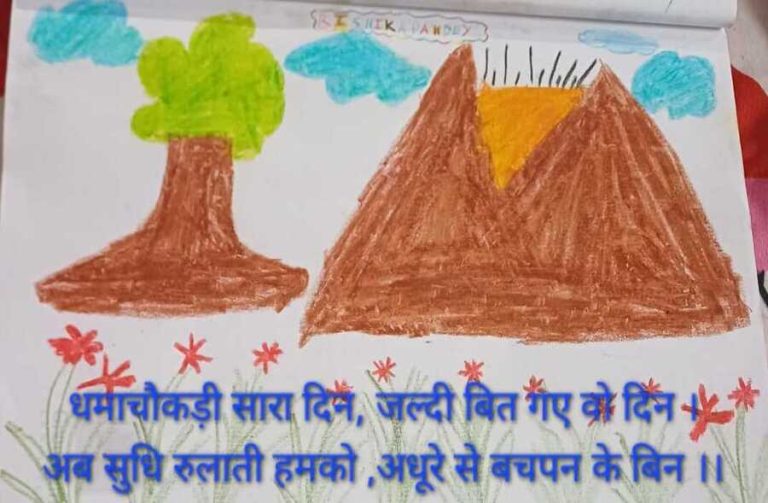 RISHIKA PANDEY
धमाचौकड़ी सारा दिन, जल्दी बित गए वो दिन ।
अब सुधि रुलाती हमको ,अधूरे से बचपन के बिन ।।